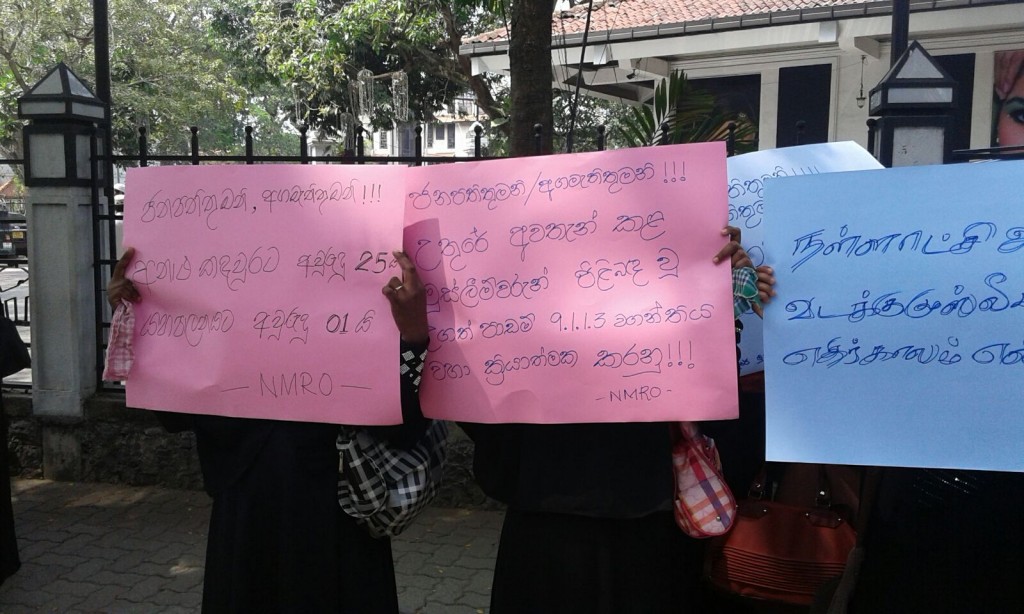 ජනපතිතුමනි, අගමැතිතුමනි !!!
අවුරුදු 25
අවුරුදු 01 යි
— NMRO —
ජනපතිතුමනි/අගමැතිතුමනි !!!
උතුරේ අවතැන් කළ
මුස්ලිම්වරුන් පිළිබඳ වූ
උගත් පාඩම් 9.1.1.3 වගන්තිය
වහා ක්‍රියාත්මක කරනු!!!
- NMRO -
நல்லாட்சி
வடக்குமுஸ்லி
எதிர்காலம் என்